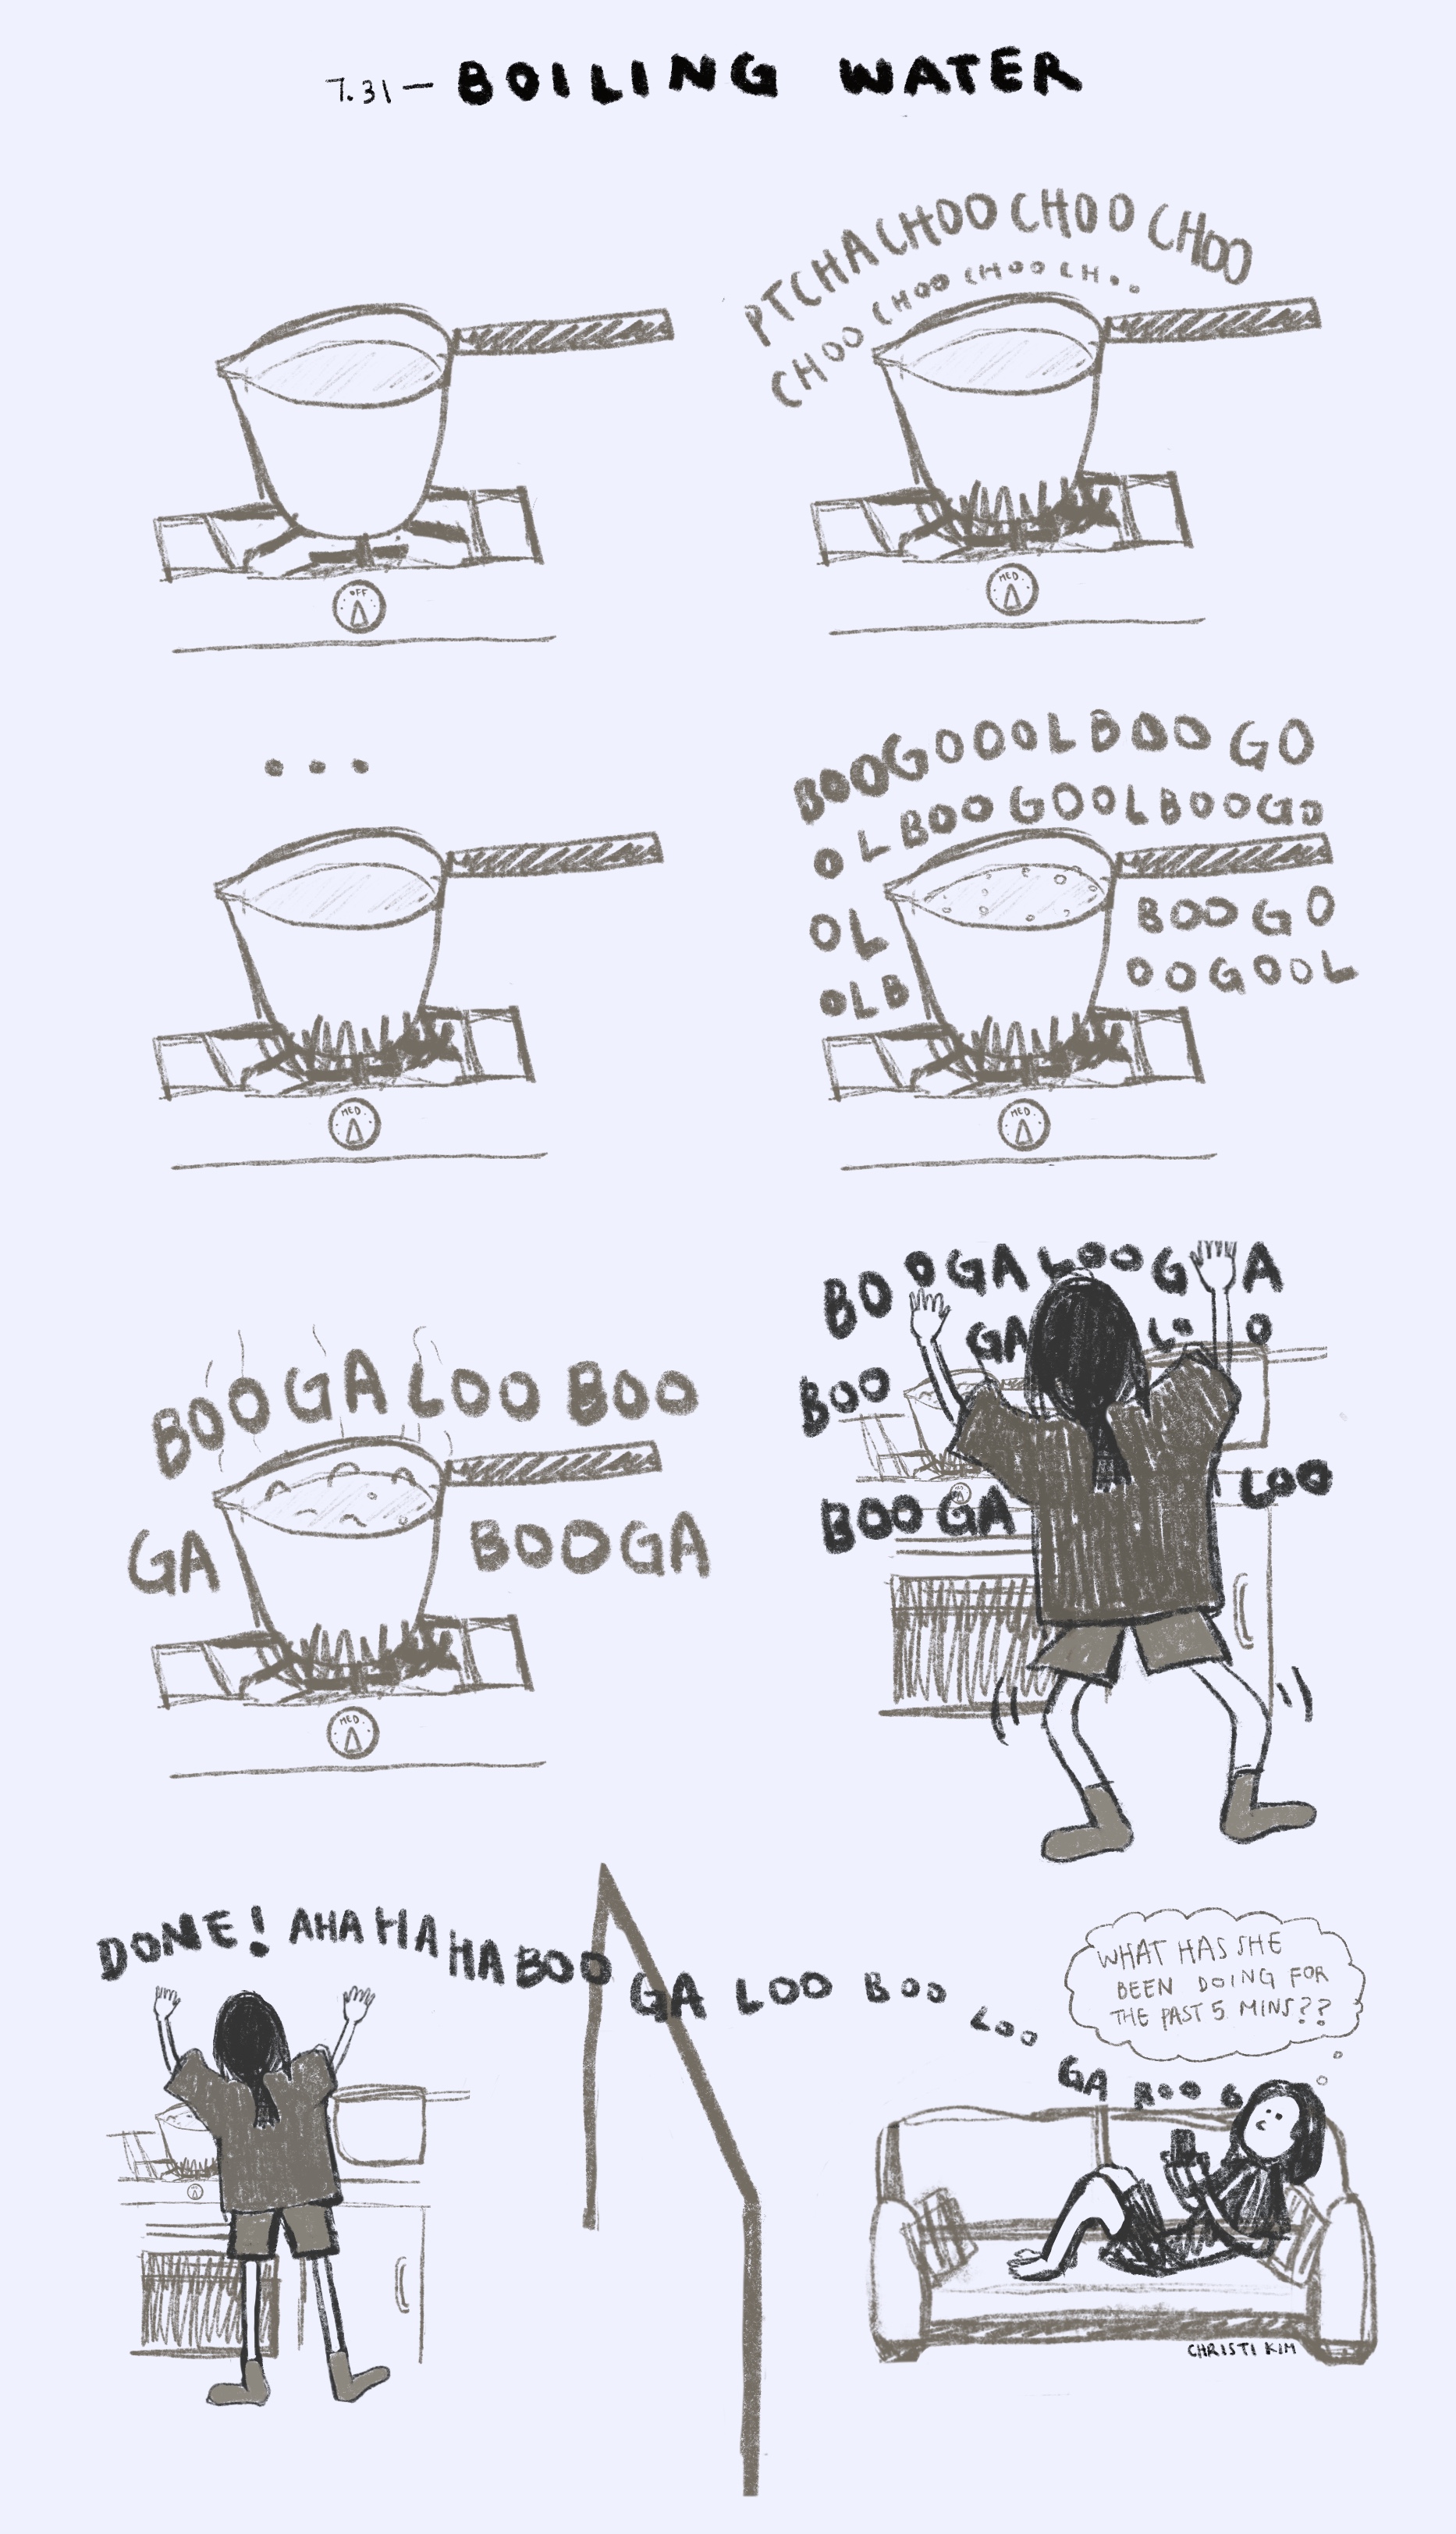 7.31 — BOILING WATER
PTCHACHOO CHOO CHOO
CHOO CHOO CHOO CH..
OFF
MED.
...
BOOGOOOLBOO GO
OLBOO GOOLBOOGO
OL
BOO GO
OLB
OOGOOL
MED.
MED.
BOOGA LOO BOO
GA
BOOGA
MED.
BOOGA LOOG A
GA LO O
BOO
BOOGA LOO
DONE! AHAHAHABOOGA LOO BOO LOO GA BOO G
WHAT HAS SHE
BEEN DOING FOR
THE PAST 5 MINS??
CHRISTI KIM